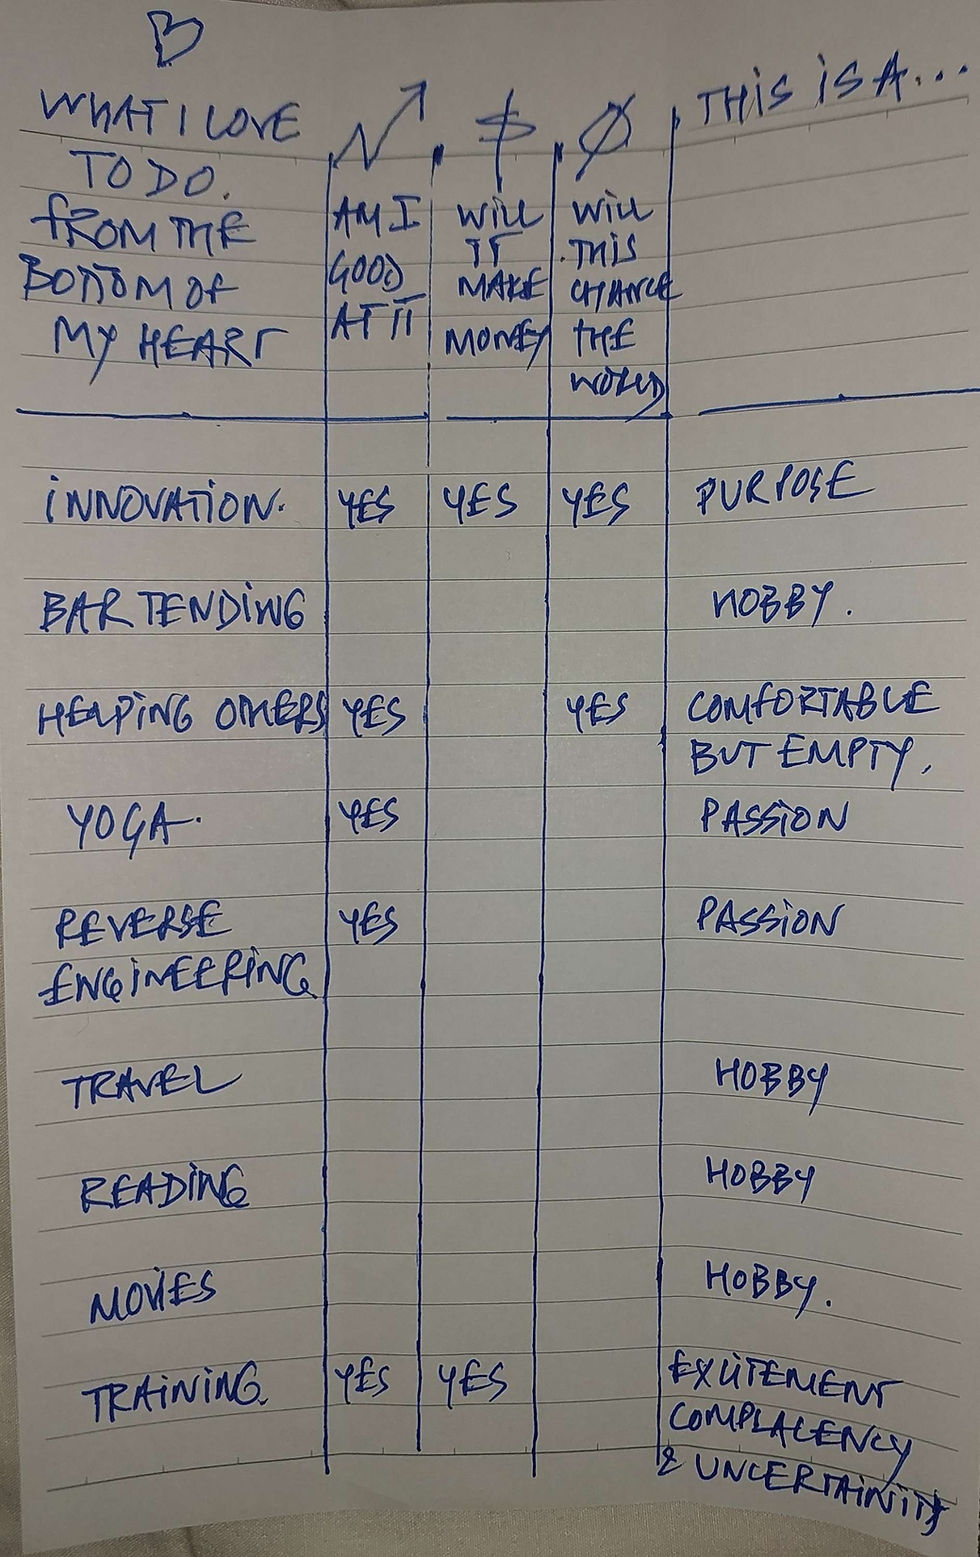 B
WHAT I LOVE
TO DO.
FROM THE
BOTTOM OF
MY HEART
AM I
GOOD
AT IT
WILL
IT
MAKE
MONEY
WILL
THIS
CHANGE
THE
WORLD
THIS IS A...
INNOVATION. YES YES YES PURPOSE
BARTENDING HOBBY.
HELPING OTHERS YES YES COMFORTABLE
BUT EMPTY,
YOGA. YES PASSION
REVERSE YES PASSION
ENGINEERING
TRAVEL HOBBY
READING HOBBY
MOVIES HOBBY.
TRAINING YES YES EXCITEMENT
COMPLACENCY
& UNCERTAINITY